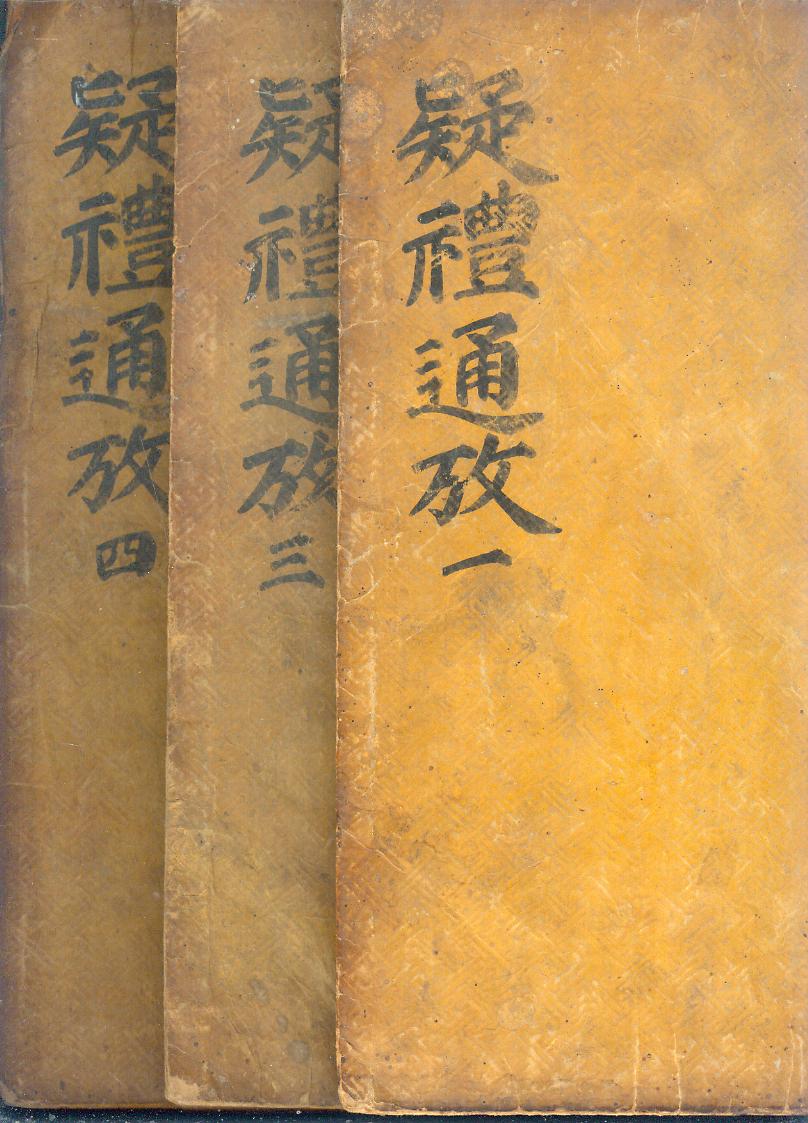 疑禮通攷 一
疑禮通攷 三
疑禮通攷 四